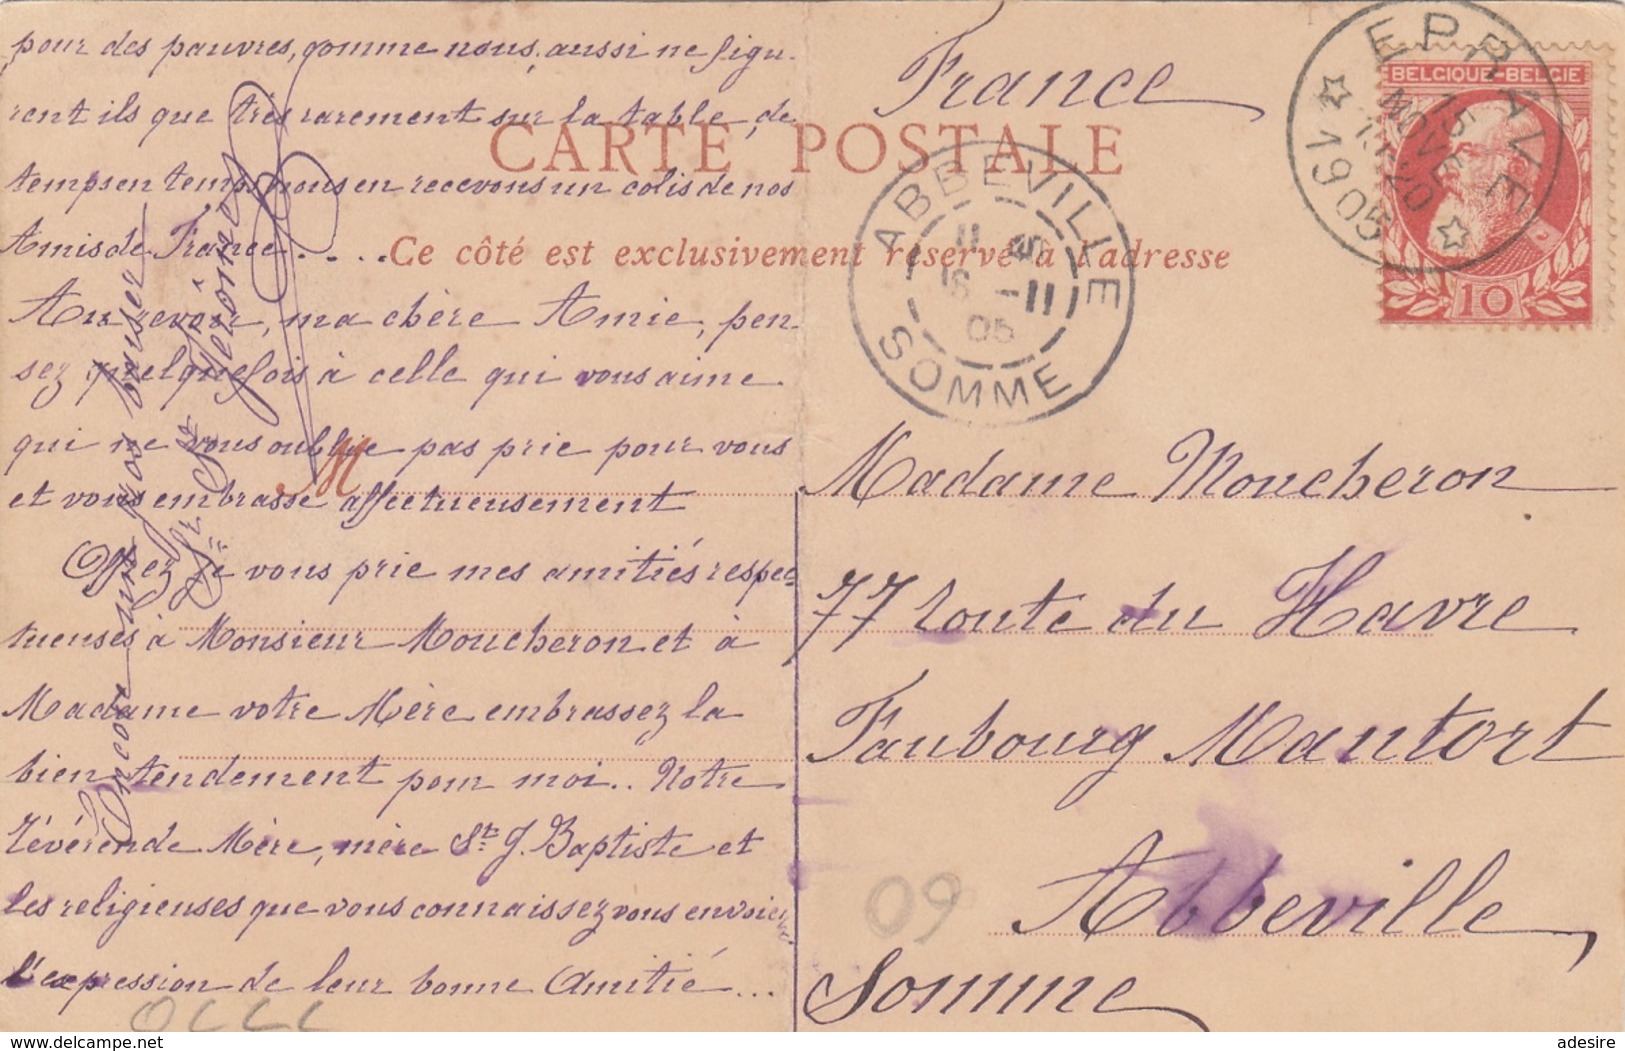 pour des pauvres, comme nous, aussi ne figu-
rent ils que très rarement sur la table, de
temps en temps nous en recevons un colis de nos
Amis de France....
Au revoir, ma chère Amie, pen-
sez quelquefois à celle qui vous aime
qui ne vous oublie pas prie pour vous
et vous embrasse affectueusement
Offrez je vous prie mes amitiés respec-
tueuses à Monsieur Moucheron et à
Madame votre Mère embrassez la
bien tendement pour moi.. Notre
Révérende Mère, mère St. J. Baptiste et
les religieuses que vous connaissez vous envoient
l'expression de leur bonne Amitié...
Encore un gros baiser
Sr
Jérôme
M
CARTE POSTALE
Ce côté est exclusivement réservé à l'adresse
France
ABBEVILLE
11 S
16 -11
05
SOMME
EPRAVE
15
NOVE
1905
BELGIQUE-BELGIE
10
Madame Moucheron
77 route du Havre
Faubourg Mautort
Abbeville
Somme
09
www.delcampe.net
adesire